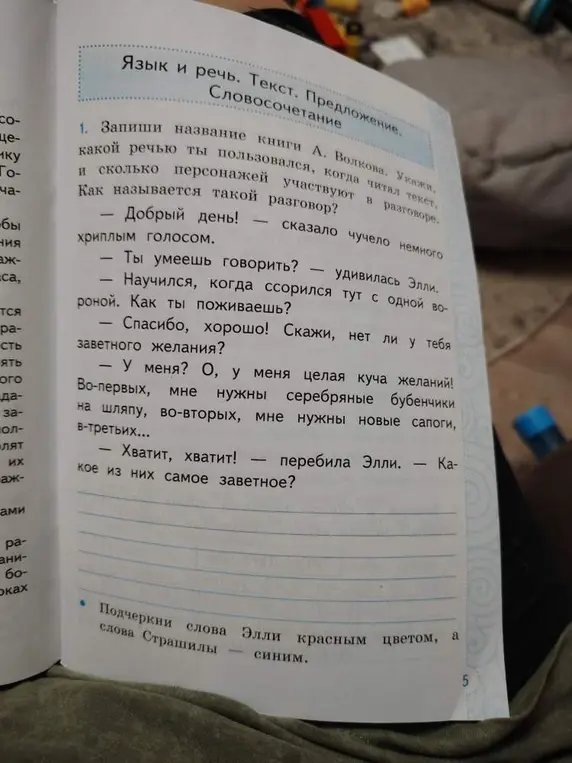 со-
ще-
нику
Го-
ча-
обы
ния
аж-
аса,
тся
ра-
сть
ять
ого
ада-
за-
пол-
олят
их
аж-
ами
ра-
ани-
бо-
оках
Язык и речь. Текст. Предложение.
Словосочетание
1. Запиши название книги А. Волкова. Укажи,
какой речью ты пользовался, когда читал текст,
и сколько персонажей участвуют в разговоре.
Как называется такой разговор?
— Добрый день! — сказало чучело немного
хриплым голосом.
— Ты умеешь говорить? — удивилась Элли.
— Научился, когда ссорился тут с одной во-
роной. Как ты поживаешь?
— Спасибо, хорошо! Скажи, нет ли у тебя
заветного желания?
— У меня? О, у меня целая куча желаний!
Во-первых, мне нужны серебряные бубенчики
на шляпу, во-вторых, мне нужны новые сапоги,
в-третьих...
— Хватит, хватит! — перебила Элли. — Ка-
кое из них самое заветное?
• Подчеркни слова Элли красным цветом, а
слова Страшилы — синим.
5